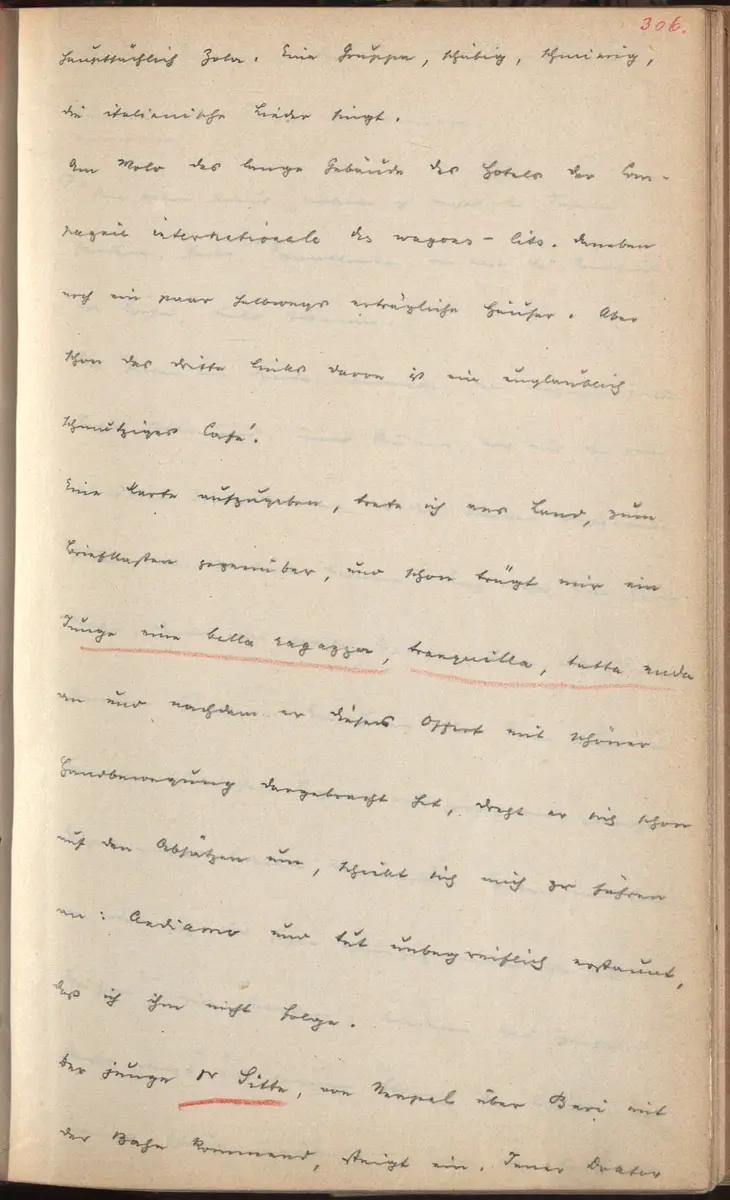 306.
hauptsächlich Zola. Eine Gruppe, schäbig, schmierig,
die italienische Lieder singt.
Am Molo das lange Gebäude des Hotels der Com-
pagnie internationale des wagons-lits. Daneben
noch ein paar halbwegs erträgliche Häuser. Aber
schon das dritte links davon ist ein unglaublich
schmutziges Café.
Eine Karte aufzugeben, trete ich ans Land, zum
Briefkasten gegenüber, und schon trägt mir ein
Junge eine bella ragazza, tranquilla, tutta nuda
an und nachdem er dieses Offert mit schöner
Handbewegung dargebracht hat, dreht er sich schon
auf den Absätzen um, schickt sich mich zu führen
an: Andiamo und tut unbegreiflich erstaunt,
dass ich ihm nicht folge.
Der junge Dr Sitte, von Neapel über Bari mit
der Bahn kommend, steigt ein. Jener Doktor